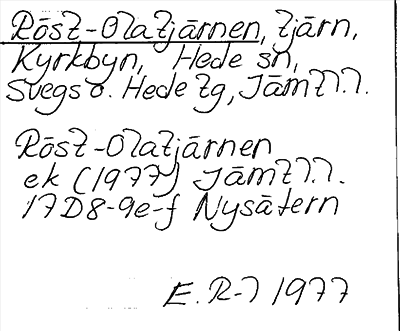 Röst-Olatjärnen, tjärn,
Kyrkbyn, Hede sn,
Svegs o. Hede tg, Jämtl.l.
Röst-Olatjärnen
ek (1977) Jämtl.l.
17D8-9e-f Nysätern
E.R-l 1977